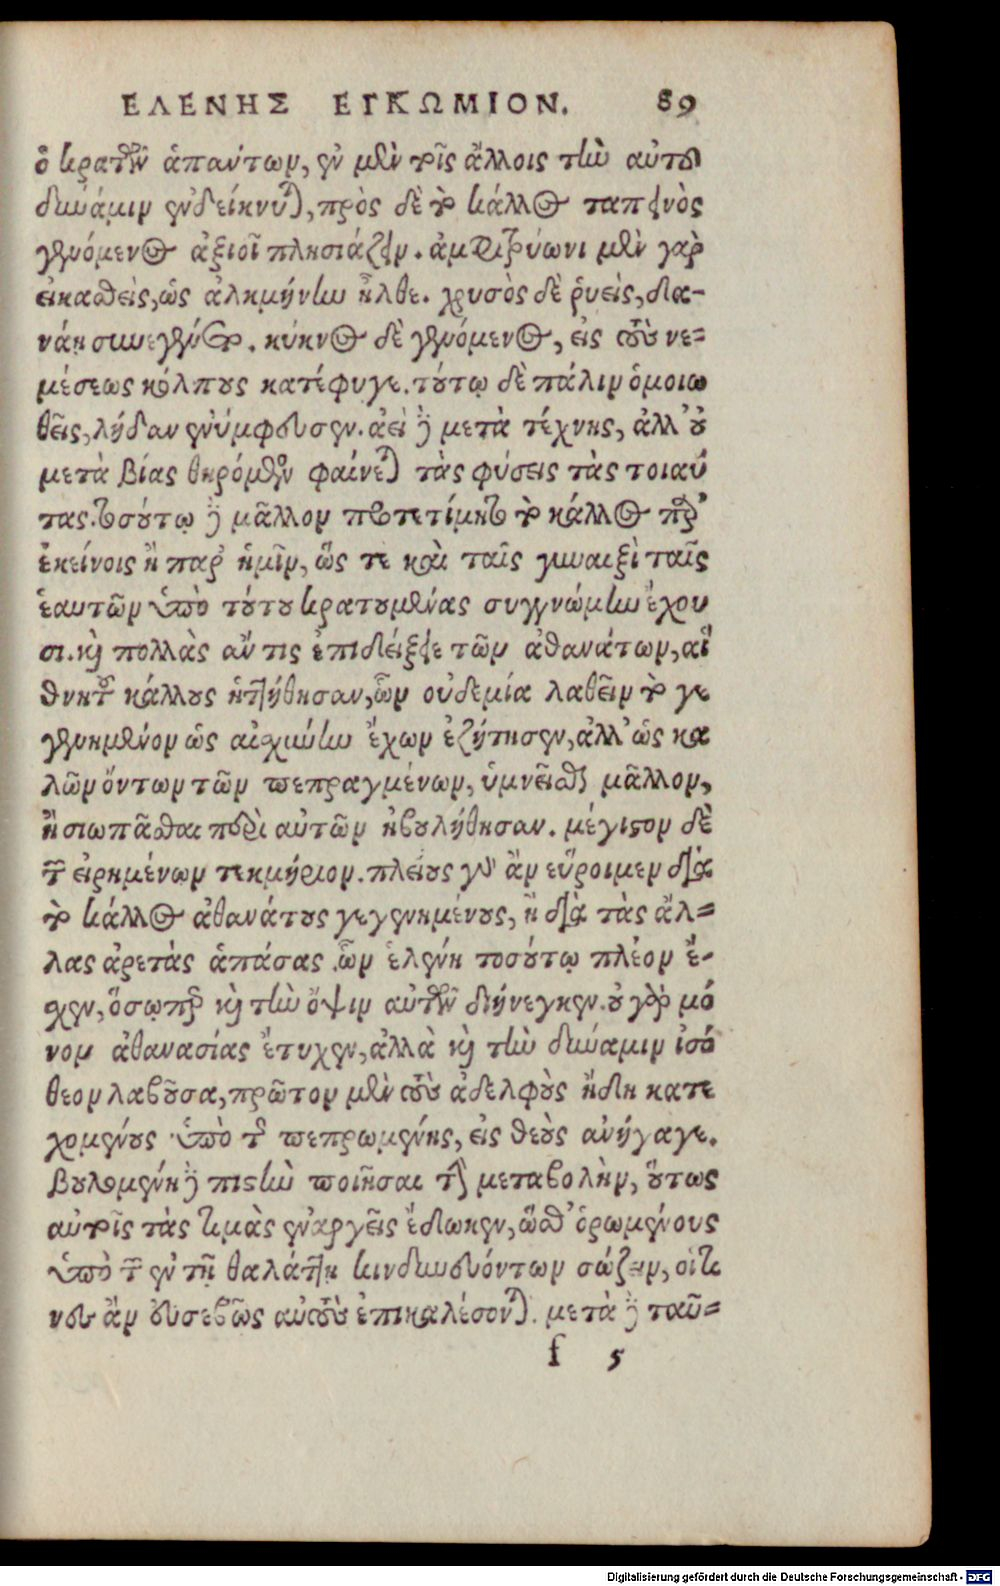 ΕΛΕΝΗΣ ΕΓΚΩΜΙΟΝ. 89
ὁ κρατῶν ἁπάντων, ἐν μὲν τοῖς ἄλλοις τὴν αὐτοῦ
δύναμιν ἐνδείκνυται, πρὸς δὲ τὸ κάλλος ταπεινὸς
γενόμενος ἀξιοῖ πλησιάζειν. ἀμφιτρύωνι μὲν γὰρ
εἰκασθεὶς, ὡς ἀλκμήνην ἦλθε. χρυσὸς δὲ ῥυεὶς, δα-
νάῃ συνεγένετο. κύκνος δὲ γενόμενος, εἰς τοὺς νε-
μέσεως κόλπους κατέφυγε. τούτῳ δὲ πάλιν ὁμοιω
θεὶς, λήδαν ἐνύμφευσεν. ἀεὶ δὲ μετὰ τέχνης, ἀλλ' οὐ
μετὰ βίας θηρώμενον φαίνεται τὰς φύσεις τὰς τοιαύ
τας. τοσούτῳ δὲ μᾶλλον προτετίμηται τὸ κάλλος παρ'
ἐκείνοις ἢ παρ' ἡμῖν, ὥς τε καὶ ταῖς γυναιξὶ ταῖς
ἑαυτῶν ὑπὸ τούτου κρατουμένας συγγνώμην ἔχου
σι. καὶ πολλὰς ἄν τις ἐπιδείξειε τῶν ἀθανάτων, αἳ
θνητοῦ κάλλους ἡττήθησαν, ὧν οὐδεμία λαθεῖν τὸ γε
γενημένον ὡς αἰσχύνην ἔχων ἐζήτησεν, ἀλλ' ὡς κα
λῶν ὄντων τῶν πεπραγμένων, ὑμνεῖσθαι μᾶλλον,
ἢ σιωπᾶσθαι περὶ αὐτῶν ἠβουλήθησαν. μέγιστον δὲ
τῶν εἰρημένων τεκμήριον. πλείους γὰρ ἂν εὕροιμεν διὰ
τὸ κάλλος ἀθανάτους γεγενημένους, ἢ διὰ τὰς ἄλ-
λας ἀρετὰς ἁπάσας. ὧν ἑλένη τοσούτῳ πλέον ἔ-
σχεν, ὅσῳπερ καὶ τὴν ὄψιν αὐτῶν διήνεγκεν. οὐ γὰρ μό
νον ἀθανασίας ἔτυχεν, ἀλλὰ καὶ τὴν δύναμιν ἰσό
θεον λαβοῦσα, πρῶτον μὲν τοὺς ἀδελφοὺς ἤδη κατε
χομένους ὑπὸ τῆς πεπρωμένης, εἰς θεοὺς ἀνήγαγε.
βουλομένη δὲ πιστὴν ποιῆσαι τὴν μεταβολὴν, οὕτως
αὐτοῖς τὰς τιμὰς ἐναργεῖς ἔδωκεν, ὥσθ' ὁρωμένους
ὑπὸ τῶν ἐν τῇ θαλάττῃ κινδυνευόντων σώζειν, οἵτι
νες ἂν εὐσεβῶς αὐτοὺς ἐπικαλέσονται. μετὰ δὲ ταῦ-
f 5
Digitalisierung gefördert durch die Deutsche Forschungsgemeinschaft - DFG